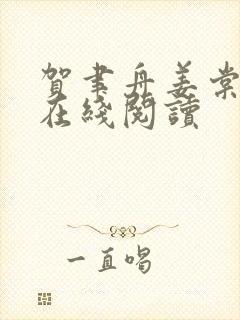 賀聿舟姜棠
在綫閱讀
一直唱